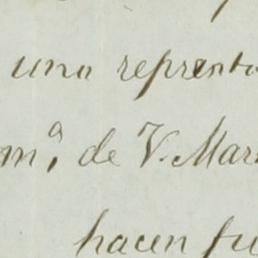 una reprenta
mª, de V. Mar
hacen fu